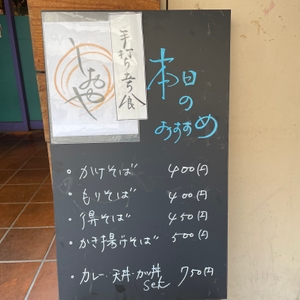 手打ち蕎麦
本日
の
おすすめ
・かけそば 400円
・もりそば 400円
・得そば 450円
・かき揚げそば 500円
・カレー・天丼・カツ丼 set 750円